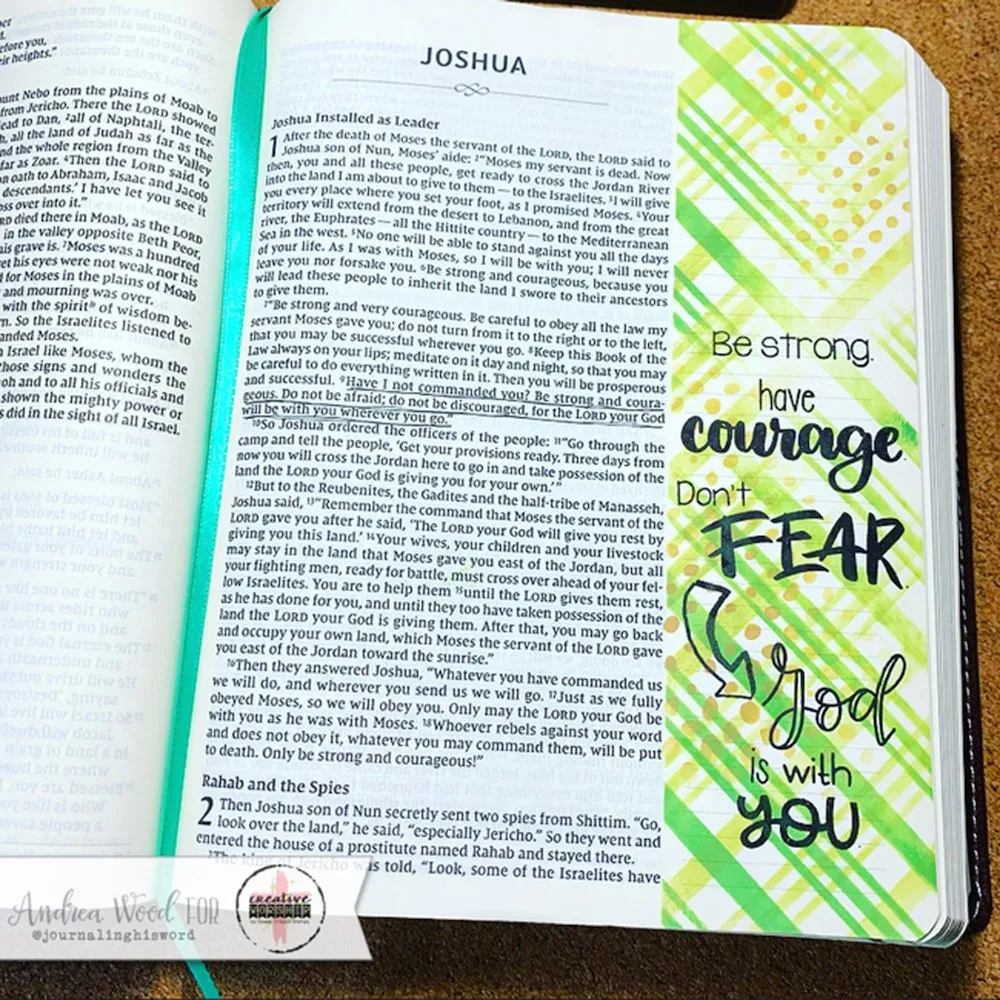 efore you,
ir heights."
unt Nebo from the plains of Moab to
from Jericho. There the LORD showed
ead to Dan, ²all of Naphtali, the ter-
h, all the land of Judah as far as the
nd the whole region from the Valley
far as Zoar. ⁴Then the LORD said to
on oath to Abraham, Isaac and Jacob
descendants.' I have let you see it
oss over into it."
RD died there in Moab, as the LORD
in the valley opposite Beth Peor,
is grave is. ⁷Moses was a hundred
et his eyes were not weak nor his
d for Moses in the plains of Moab
and mourning was over.
with the spiritᵇ of wisdom be-
n. So the Israelites listened to
anded Moses.
Israel like Moses, whom the
those signs and wonders the
oh and to all his officials and
shown the mighty power or
s did in the sight of all Israel.
JOSHUA
Joshua Installed as Leader
1 After the death of Moses the servant of the LORD, the LORD said to
Joshua son of Nun, Moses' aide: ²"Moses my servant is dead. Now
then, you and all these people, get ready to cross the Jordan River
into the land I am about to give to them — to the Israelites. ³I will give
you every place where you set your foot, as I promised Moses. ⁴Your
territory will extend from the desert to Lebanon, and from the great
river, the Euphrates — all the Hittite country — to the Mediterranean
Sea in the west. ⁵No one will be able to stand against you all the days
of your life. As I was with Moses, so I will be with you; I will never
leave you nor forsake you. ⁶Be strong and courageous, because you
will lead these people to inherit the land I swore to their ancestors
to give them.
⁷"Be strong and very courageous. Be careful to obey all the law my
servant Moses gave you; do not turn from it to the right or to the left,
that you may be successful wherever you go. ⁸Keep this Book of the
Law always on your lips; meditate on it day and night, so that you may
be careful to do everything written in it. Then you will be prosperous
and successful. ⁹Have I not commanded you? Be strong and coura-
geous. Do not be afraid; do not be discouraged, for the LORD your God
will be with you wherever you go."
¹⁰So Joshua ordered the officers of the people: ¹¹"Go through the
camp and tell the people, 'Get your provisions ready. Three days from
now you will cross the Jordan here to go in and take possession of the
land the LORD your God is giving you for your own.'"
¹²But to the Reubenites, the Gadites and the half-tribe of Manasseh,
Joshua said, ¹³"Remember the command that Moses the servant of the
LORD gave you after he said, 'The LORD your God will give you rest by
giving you this land.' ¹⁴Your wives, your children and your livestock
may stay in the land that Moses gave you east of the Jordan, but all
your fighting men, ready for battle, must cross over ahead of your fel-
low Israelites. You are to help them ¹⁵until the LORD gives them rest,
as he has done for you, and until they too have taken possession of the
land the LORD your God is giving them. After that, you may go back
and occupy your own land, which Moses the servant of the LORD gave
you east of the Jordan toward the sunrise."
¹⁶Then they answered Joshua, "Whatever you have commanded us
we will do, and wherever you send us we will go. ¹⁷Just as we fully
obeyed Moses, so we will obey you. Only may the LORD your God be
with you as he was with Moses. ¹⁸Whoever rebels against your word
and does not obey it, whatever you may command them, will be put
to death. Only be strong and courageous!"
Rahab and the Spies
2 Then Joshua son of Nun secretly sent two spies from Shittim. "Go,
look over the land," he said, "especially Jericho." So they went and
entered the house of a prostitute named Rahab and stayed there.
²The king of Jericho was told, "Look, some of the Israelites have
Be strong.
have
courage
Don't
FEAR.
God
is with
YOU.
Andrea Wood FOR
@journalinghisword
creative
WORSHIP